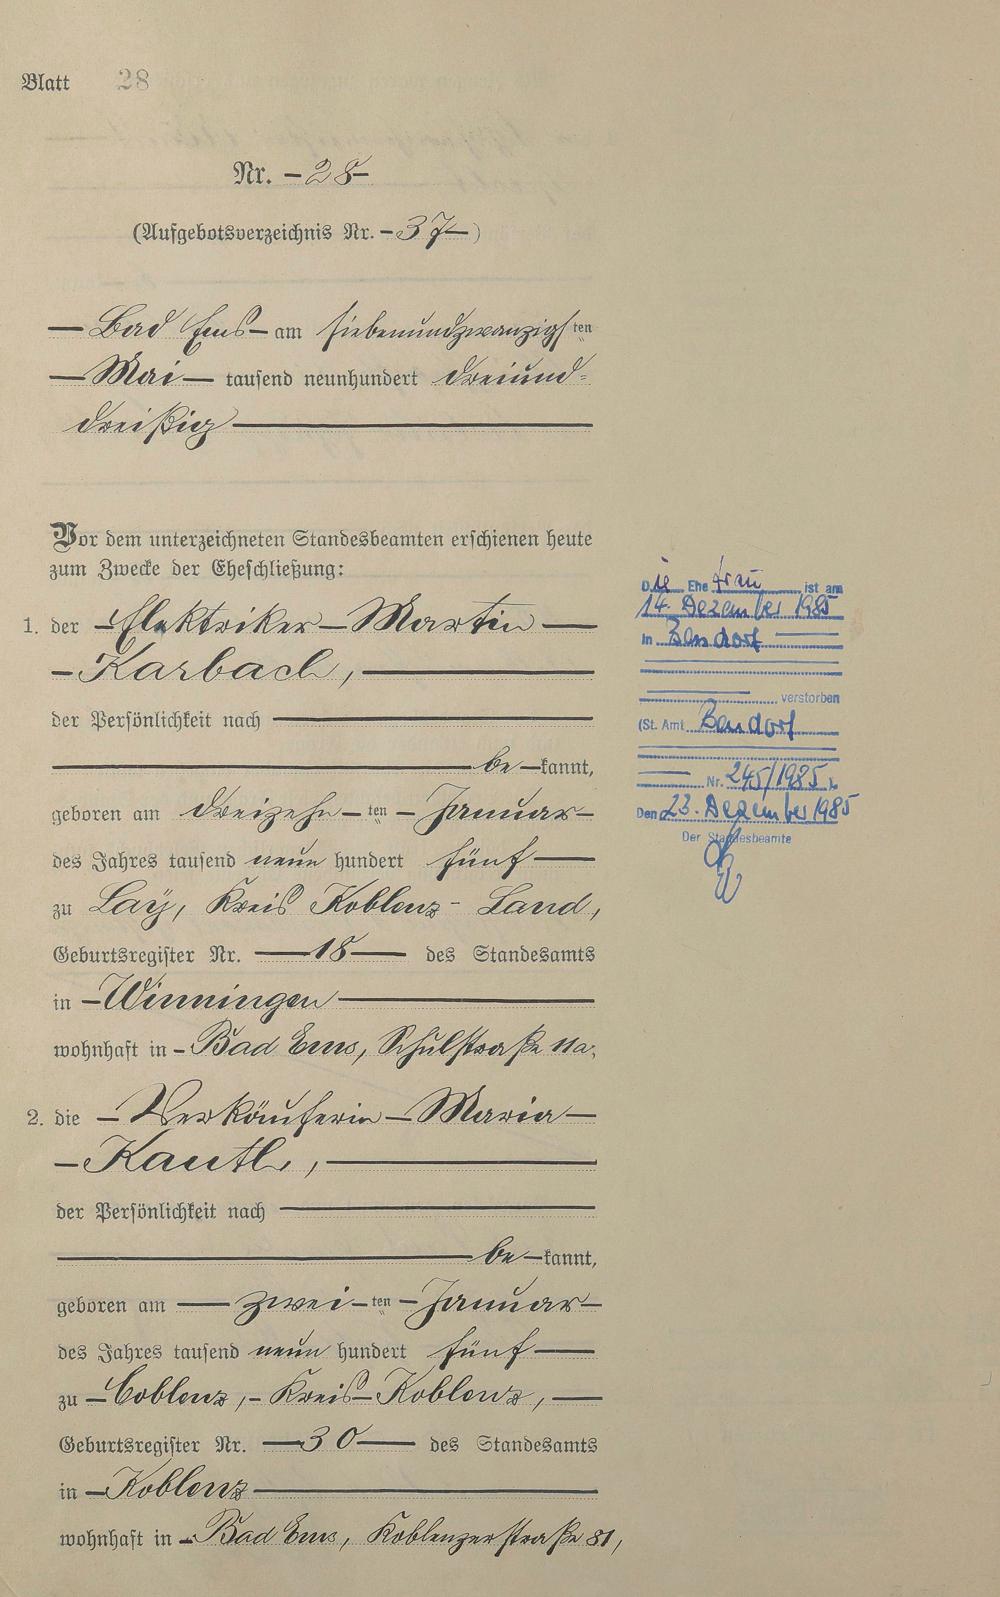 Blatt 28
Nr. 28
(Aufgebotsverzeichnis Nr. 37)
Bad Ems am siebenundzwanzigsten
Mai tausend neunhundert dreiund-
dreißig
Vor dem unterzeichneten Standesbeamten erschienen heute
zum Zwecke der Eheschließung:
1. der Elektriker Martin
Karbach,
der Persönlichkeit nach
be kannt,
geboren am dreizehn ten Januar
des Jahres tausend neun hundert fünf
zu Lay, Kreis Koblenz-Land,
Geburtsregister Nr. 18 des Standesamts
in Winningen
wohnhaft in Bad Ems, Schulstraße 11a,
2. die Verkäuferin Maria
Kauth,
der Persönlichkeit nach
be kannt,
geboren am zwei ten Januar
des Jahres tausend neun hundert fünf
zu Coblenz, Kreis Koblenz,
Geburtsregister Nr. 30 des Standesamts
in Koblenz
wohnhaft in Bad Ems, Koblenzerstraße 81,
Die Ehefrau ist am
14. Dezember 1985
in Bendorf
verstorben
(St. Amt Bendorf
Nr. 245/1985)
Den 23. Dezember 1985
Der Standesbeamte